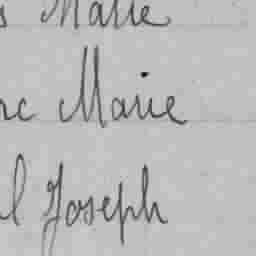 s Marie
nc Marie
l Joseph